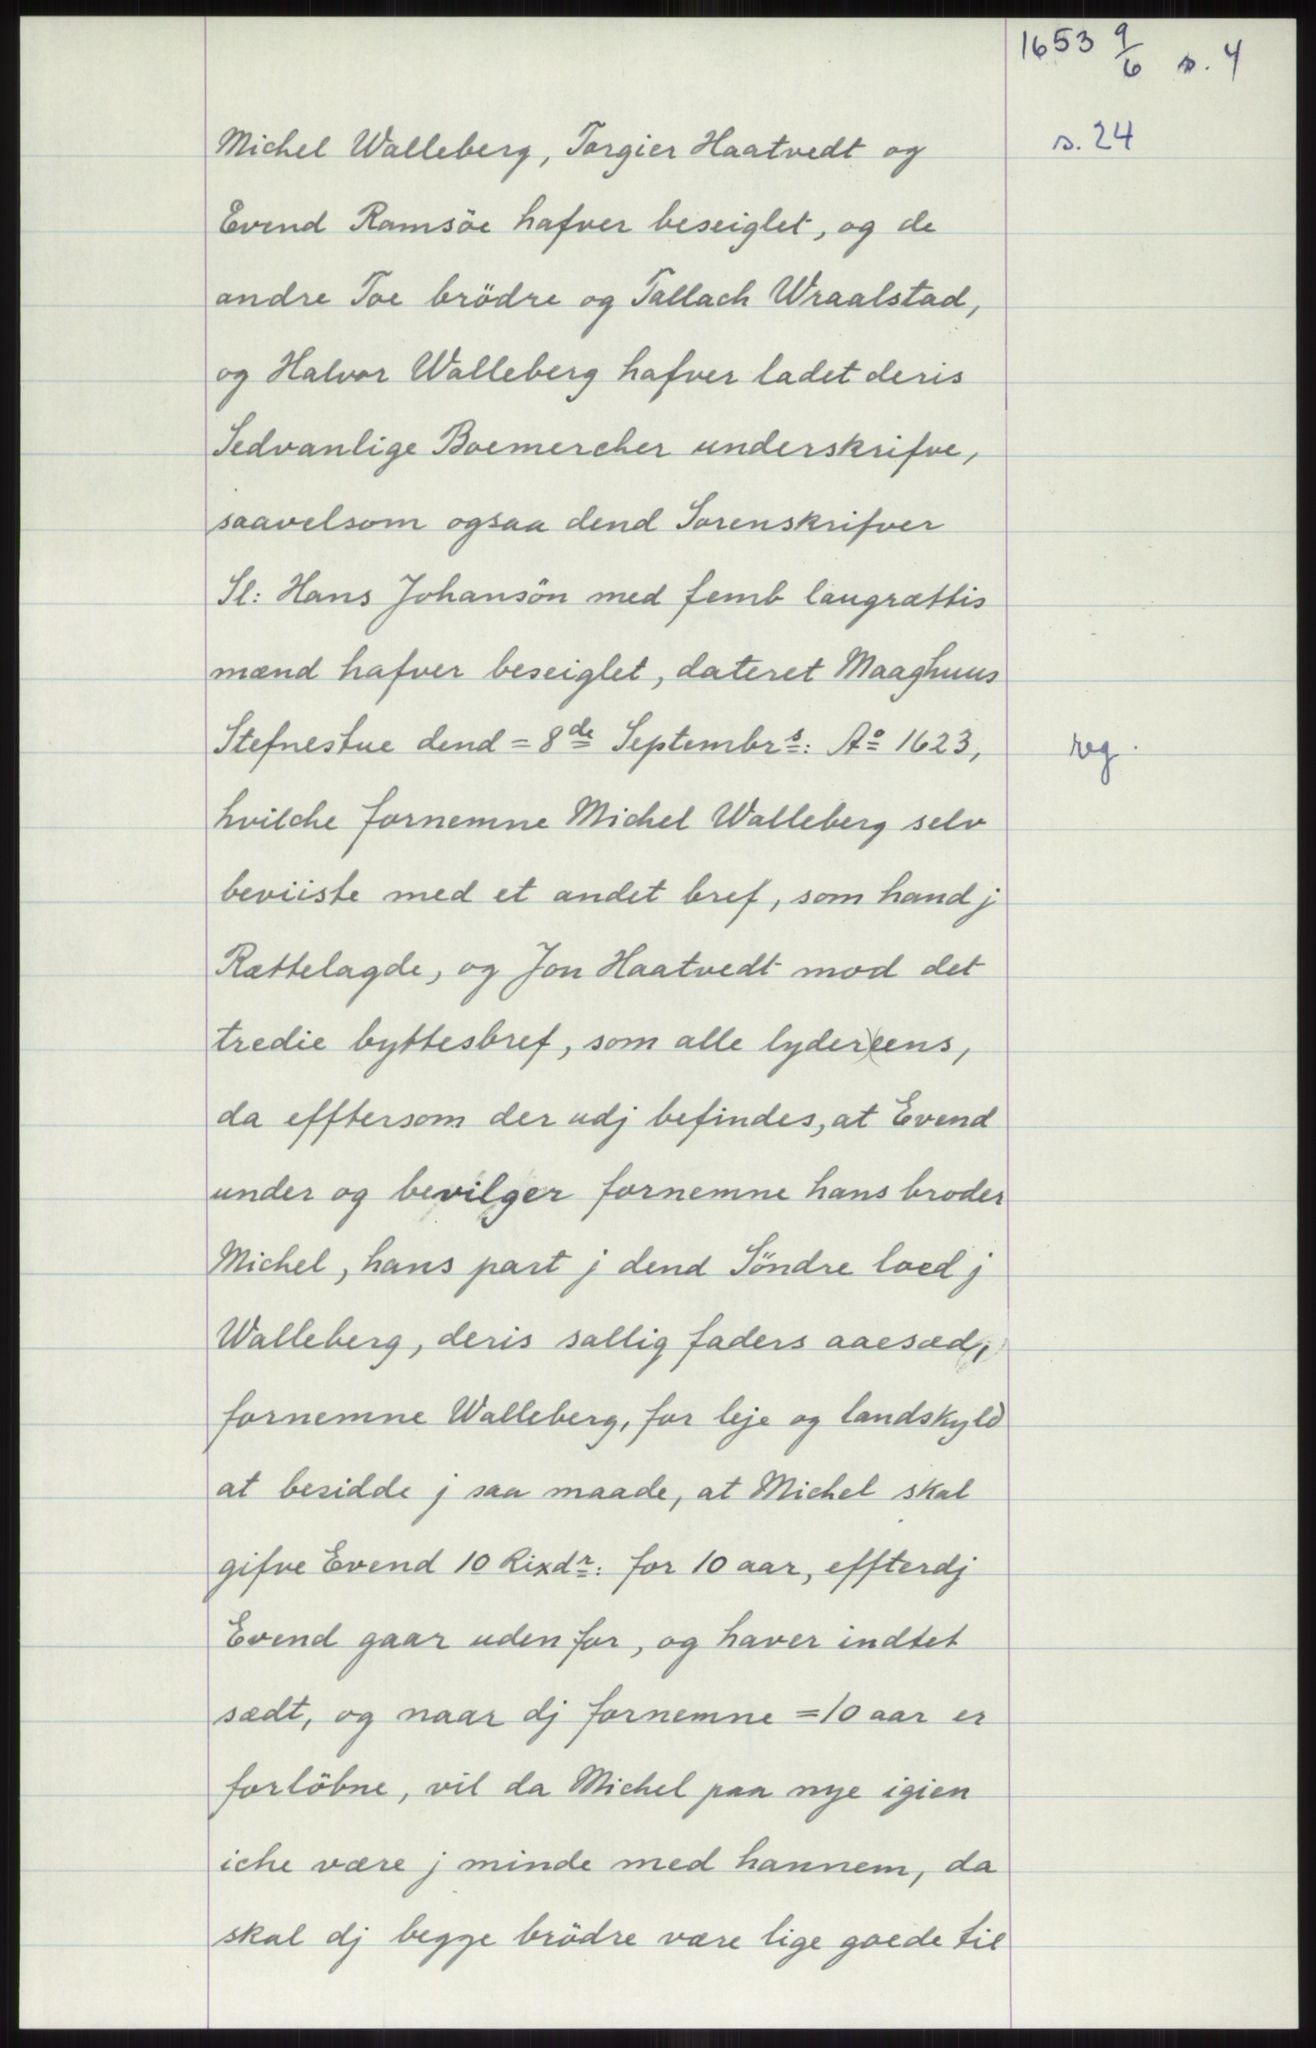 1653 9/6 s. 4
s. 24
Michel Walleberg, Torgier Haatvedt og
Evend Ramsöe hafver beseiglet, og de
andre Toe brödre og Tallach Wraalstad,
og Halvor Walleberg hafver ladet deris
Sedvanlige Boemercher underskrifve,
saavelsom ogsaa dend Sorenskrifver
Sl: Hans Johansön med femb laugrættis
mænd hafver beseiglet, dateret Maaghuus
Stefnestue dend = 8de Septembrs: Ao 1623,
reg.
hvilche fornemne Michel Walleberg selv
beviiste med et andet bref, som hand j
Rættelagde, og Jon Haatvedt mod det
tredie byttesbref, som alle lyder eens,
da efftersom der udj befindes, at Evend
under og bevilger fornemne hans broder
Michel, hans part j dend Söndre loed j
Walleberg, deris sallig faders aaesæd,
fornemne Walleberg, for leje og landskyld
at besidde j saa maade, at Michel skal
gifve Evend 10 Rixdr: for 10 aar, effterdj
Evend gaar uden for, og haver indtet
sædt, og naar dj fornemne = 10 aar er
forlöbne, vil da Michel paa nye igien
iche være j minde med hannem, da
skal dj begge brödre være lige goede til